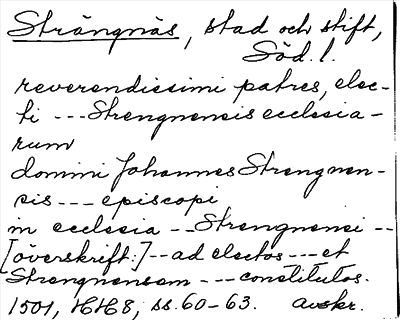 Strängnäs, stad och stift,
Söd. l.
reverendissimi patres, elec-
ti --- Strengnensis ecclesia-
rum
domini Johannes Strengnen-
sis --- episcopi
in ecclesia -- Strengnensi --
[överskrift:] -- ad electos --- et
Strengnensem --- constitutos.
1501, HH8, ss. 60-63. Avskr.